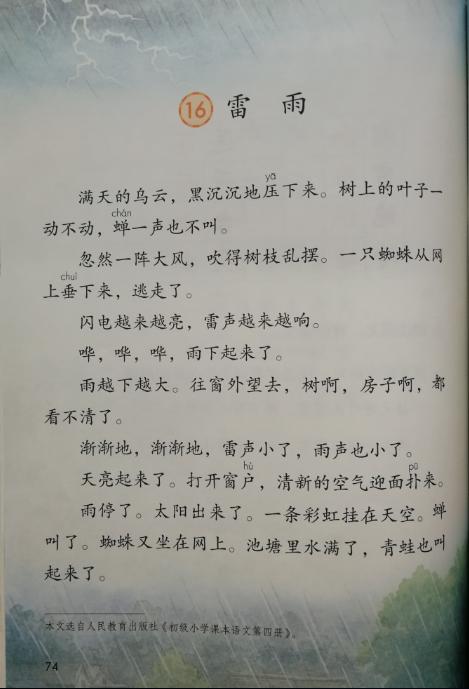 16 雷雨
yā
满天的乌云，黑沉沉地压下来。树上的叶子一
chán
动不动，蝉一声也不叫。
忽然一阵大风，吹得树枝乱摆。一只蜘蛛从网
chuí
上垂下来，逃走了。
闪电越来越亮，雷声越来越响。
哗，哗，哗，雨下起来了。
雨越下越大。往窗外望去，树啊，房子啊，都
看不清了。
渐渐地，渐渐地，雷声小了，雨声也小了。
hù pū
天亮起来了。打开窗户，清新的空气迎面扑来。
雨停了。太阳出来了。一条彩虹挂在天空。蝉
叫了。蜘蛛又坐在网上。池塘里水满了，青蛙也叫
起来了。
本文选自人民教育出版社《初级小学课本语文第四册》。
74